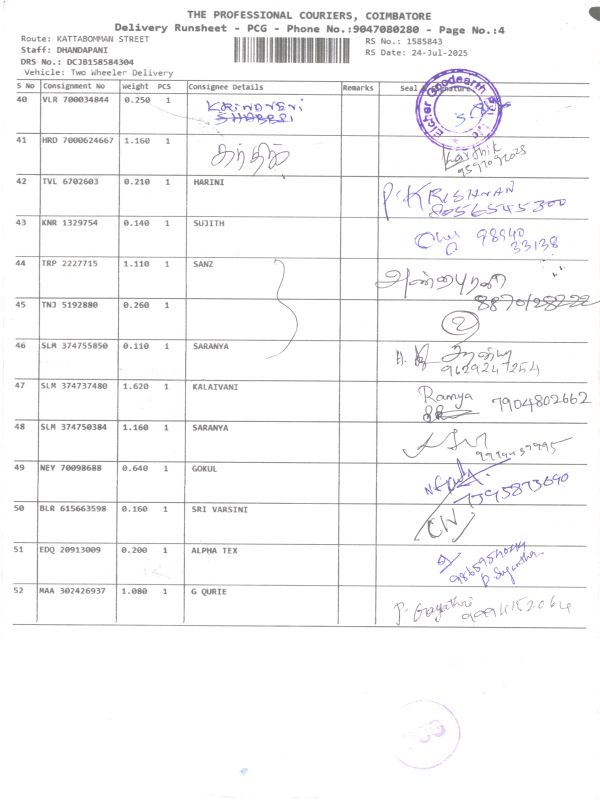 THE PROFESSIONAL COURIERS, COIMBATORE
Delivery Runsheet - PCG - Phone No.:9047080280 - Page No.:4
Route: KATTABOMMAN STREET
Staff: DHANDAPANI
DRS No.: DCJB158584304
Vehicle: Two Wheeler Delivery
RS No.: 1585843
RS Date: 24-Jul-2025
S No Consignment No Weight PCS Consignee Details Remarks Seal
40 VLR 700034844 0.250 1
41 HRD 7000624667 1.160 1 கார்திக் Karthik
42 TVL 6702603 0.210 1 HARINI P. KRISHNAN
8056545300
43 KNR 1329754 0.140 1 SUJITH 98940
33138
44 TRP 2227715 1.110 1 SANZ அன்னபூரணி
45 TNJ 5192880 0.260 1 2
46 SLM 374755850 0.110 1 SARANYA
9629247254
47 SLM 374737480 1.620 1 KALAIVANI Ramya 7904802662
48 SLM 374750384 1.160 1 SARANYA
49 NEY 70098688 0.640 1 GOKUL
7395873690
50 BLR 615663598 0.160 1 SRI VARSINI
51 EDQ 20913009 0.200 1 ALPHA TEX
52 MAA 302426937 1.080 1 G QURIE P. Gayathri